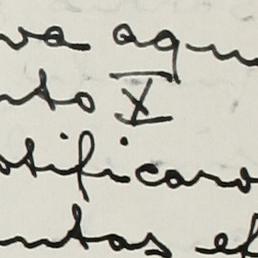 va aqu
nto X
otificaro
ntas el